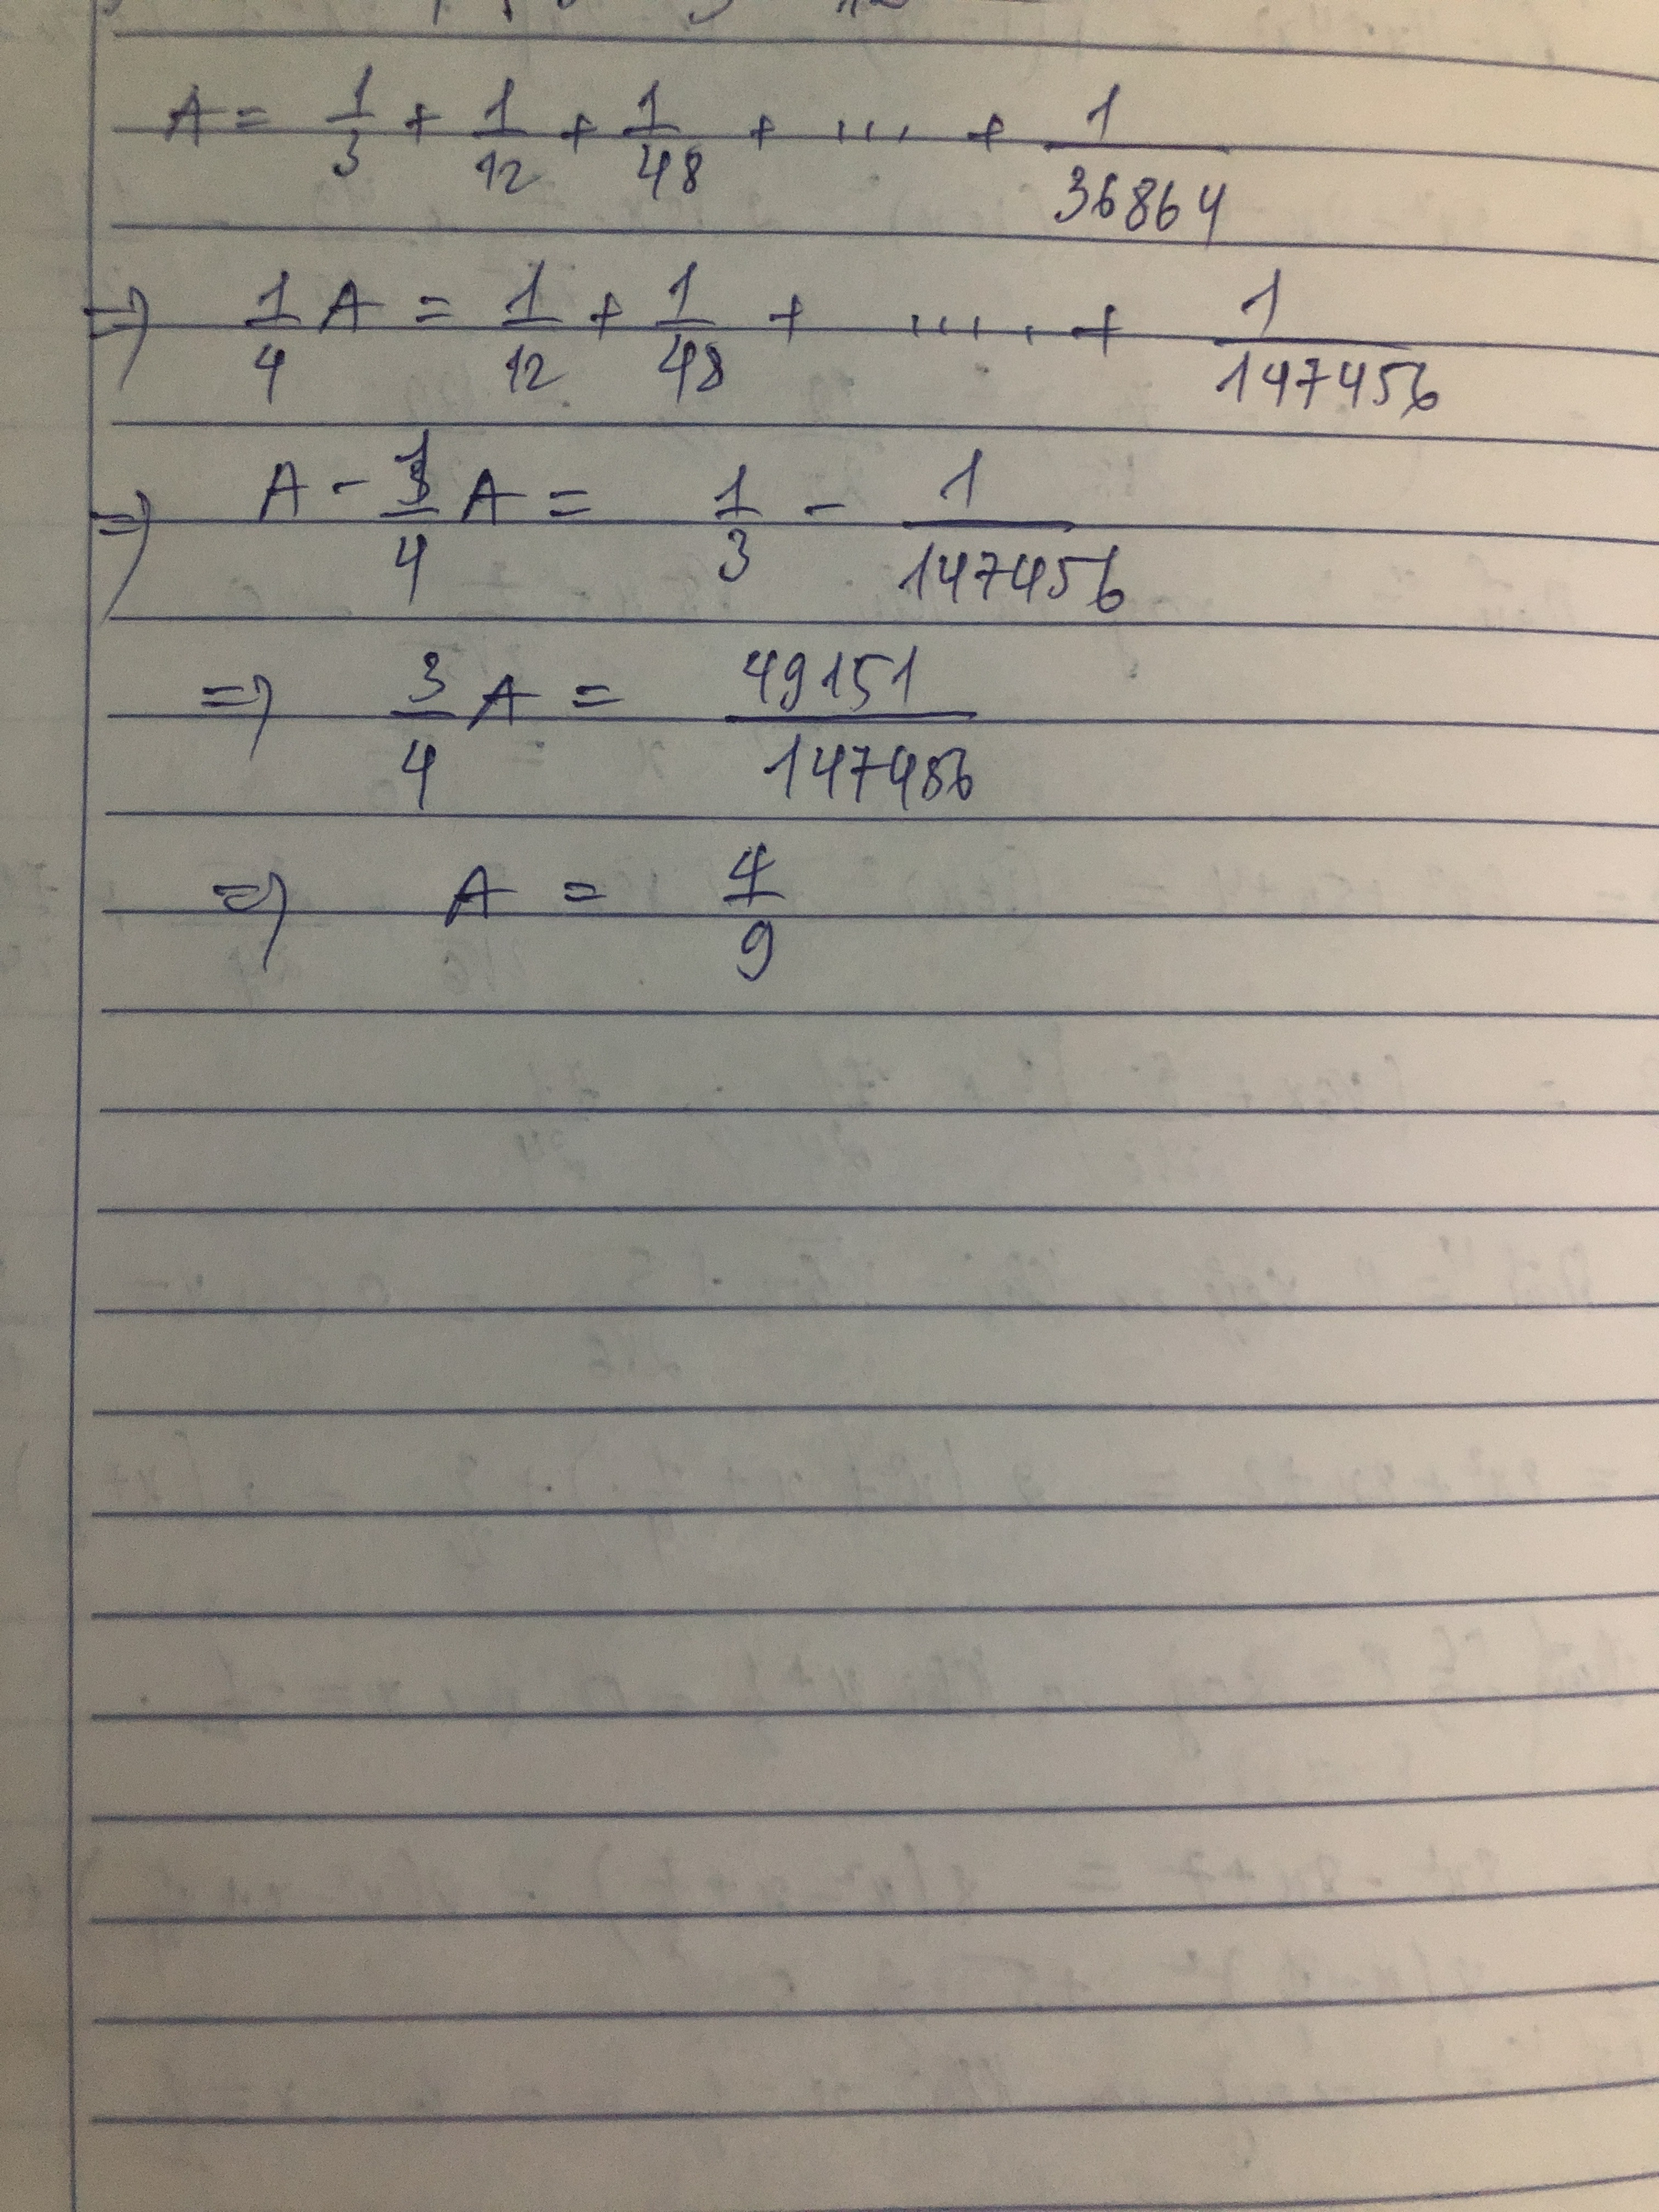 A = 1/3 + 1/12 + 1/48 + .... + 1/36864
=> 1/4 A = 1/12 + 1/48 + ..... + 1/147456
=> A - 1/4 A = 1/3 - 1/147456
=> 3/4 A = 49151/147456
=> A = 4/9